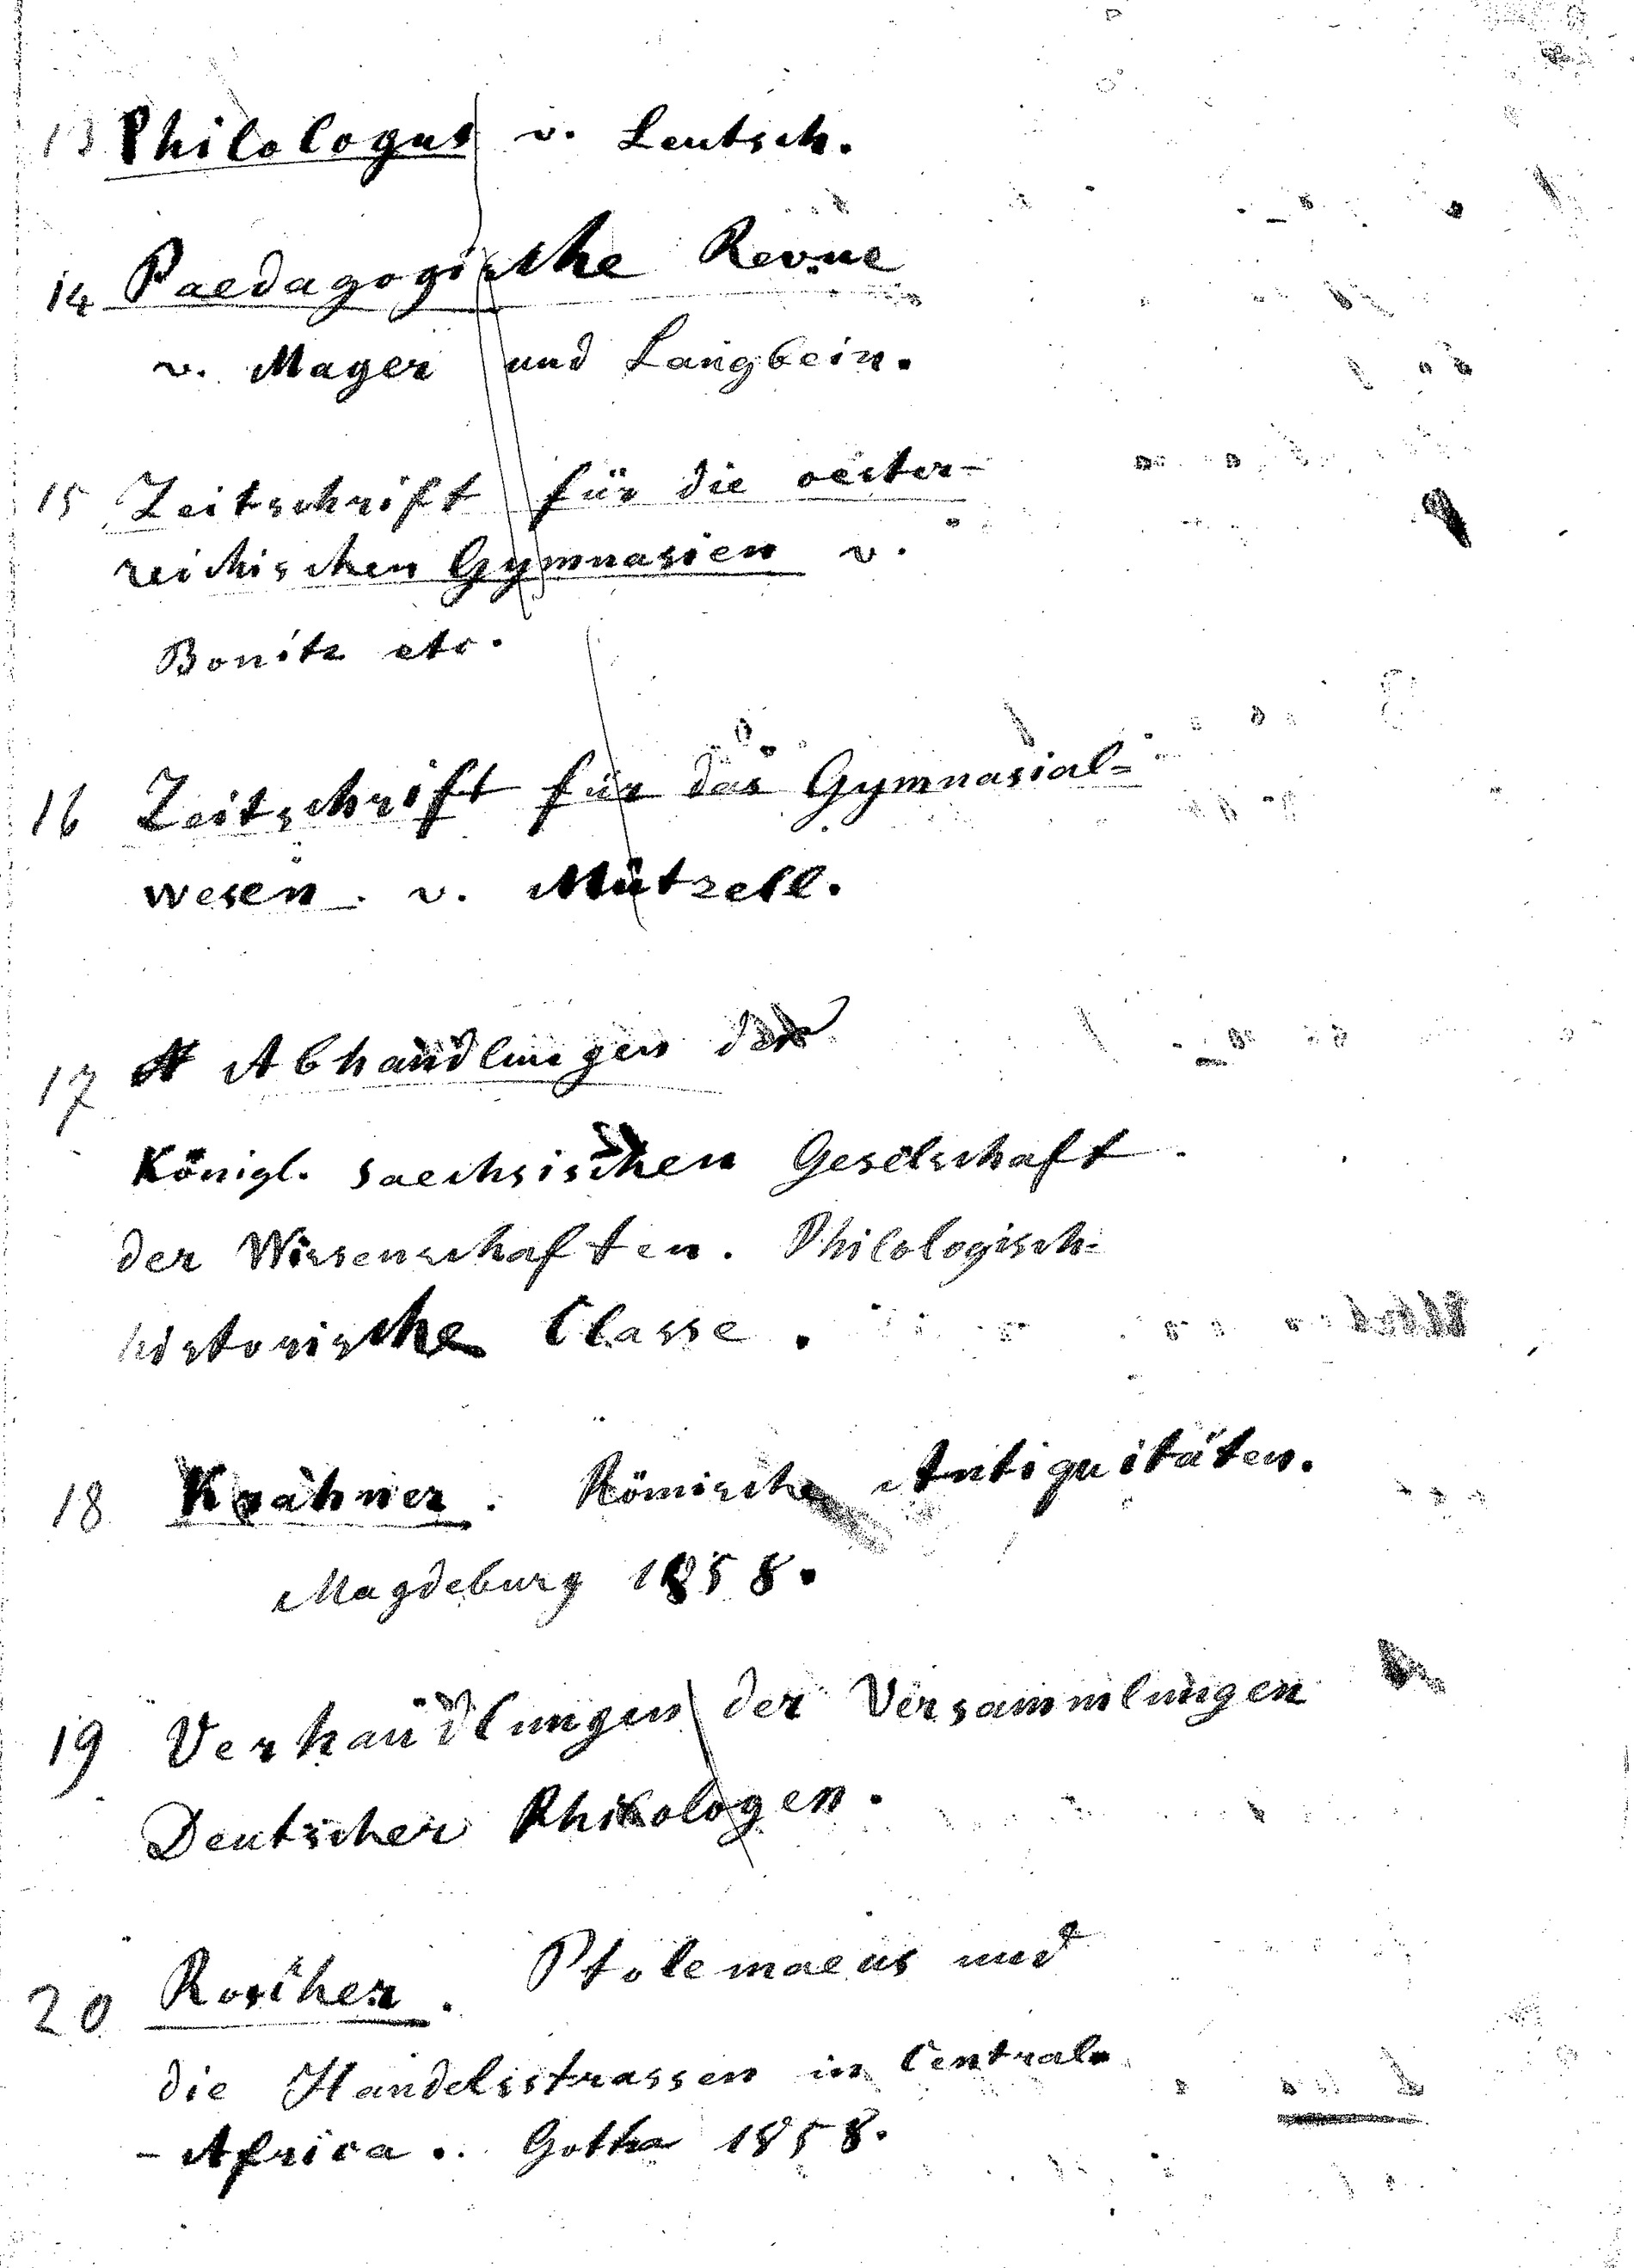 13 Philologus v. Leutsch.
14 Paedagogische Revue
v. Mager und Langbein.
15 Zeitschrift für die oester-
reichischen Gymnasien v.
Bonitz etc.
16 Zeitschrift für das Gymnasial=
wesen v. Mützell.
17 A Abhandlungen der
Königl. saechsischen Gesellschaft
der Wissenschaften. Philologisch=
historische Classe.
18 Krahner. Römische Antiquitäten.
Magdeburg 1858.
19 Verhandlungen der Versammlungen
Deutscher Philologen.
20 Roscher. Ptolemaeus und
die Handelsstrassen in Central-
-Africa. Gotha 1858.